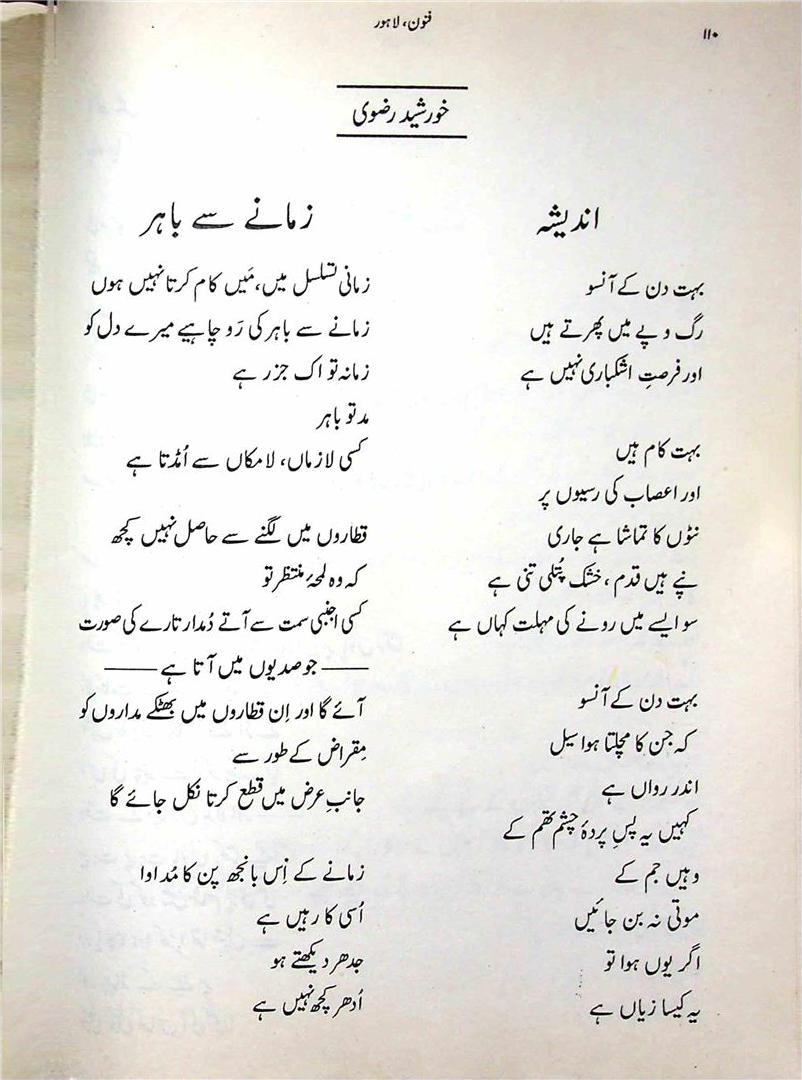 فنون، لاہور
۱۱۰
خورشید رضوی
اندیشہ
بہت دن کے آنسو
رگ و پے میں پھرتے ہیں
اور فرصتِ اشکباری نہیں ہے
بہت کام ہیں
اور اعصاب کی رسیوں پر
نٹوں کا تماشا ہے جاری
نپے ہیں قدم، خشک پُتلی تنی ہے
سو ایسے میں رونے کی مہلت کہاں ہے
بہت دن کے آنسو
کہ جن کا مچلتا ہوا سیل
اندر رواں ہے
کہیں یہ پسِ پردۂ چشم تھم کے
وہیں جم کے
موتی نہ بن جائیں
اگر یوں ہوا تو
یہ کیسا زیاں ہے
زمانے سے باہر
زمانی تسلسل میں، مَیں کام کرتا نہیں ہوں
زمانے سے باہر کی رَو چاہیے میرے دل کو
زمانہ تو اک جزر ہے
مد تو باہر
کسی لازماں، لامکاں سے اُمڈتا ہے
قطاروں میں لگنے سے حاصل نہیں کچھ
کہ وہ لمحۂ منتظر تو
کسی اجنبی سمت سے آتے دُمدار تارے کی صورت
—— جو صدیوں میں آتا ہے ——
آئے گا اور اِن قطاروں میں بھٹکے مداروں کو
مِقراض کے طور سے
جانبِ عرض میں قطع کرتا نکل جائے گا
زمانے کے اِس بانجھ پن کا مُداوا
اُسی کا رہیں ہے
جدھر دیکھتے ہو
اُدھر کچھ نہیں ہے